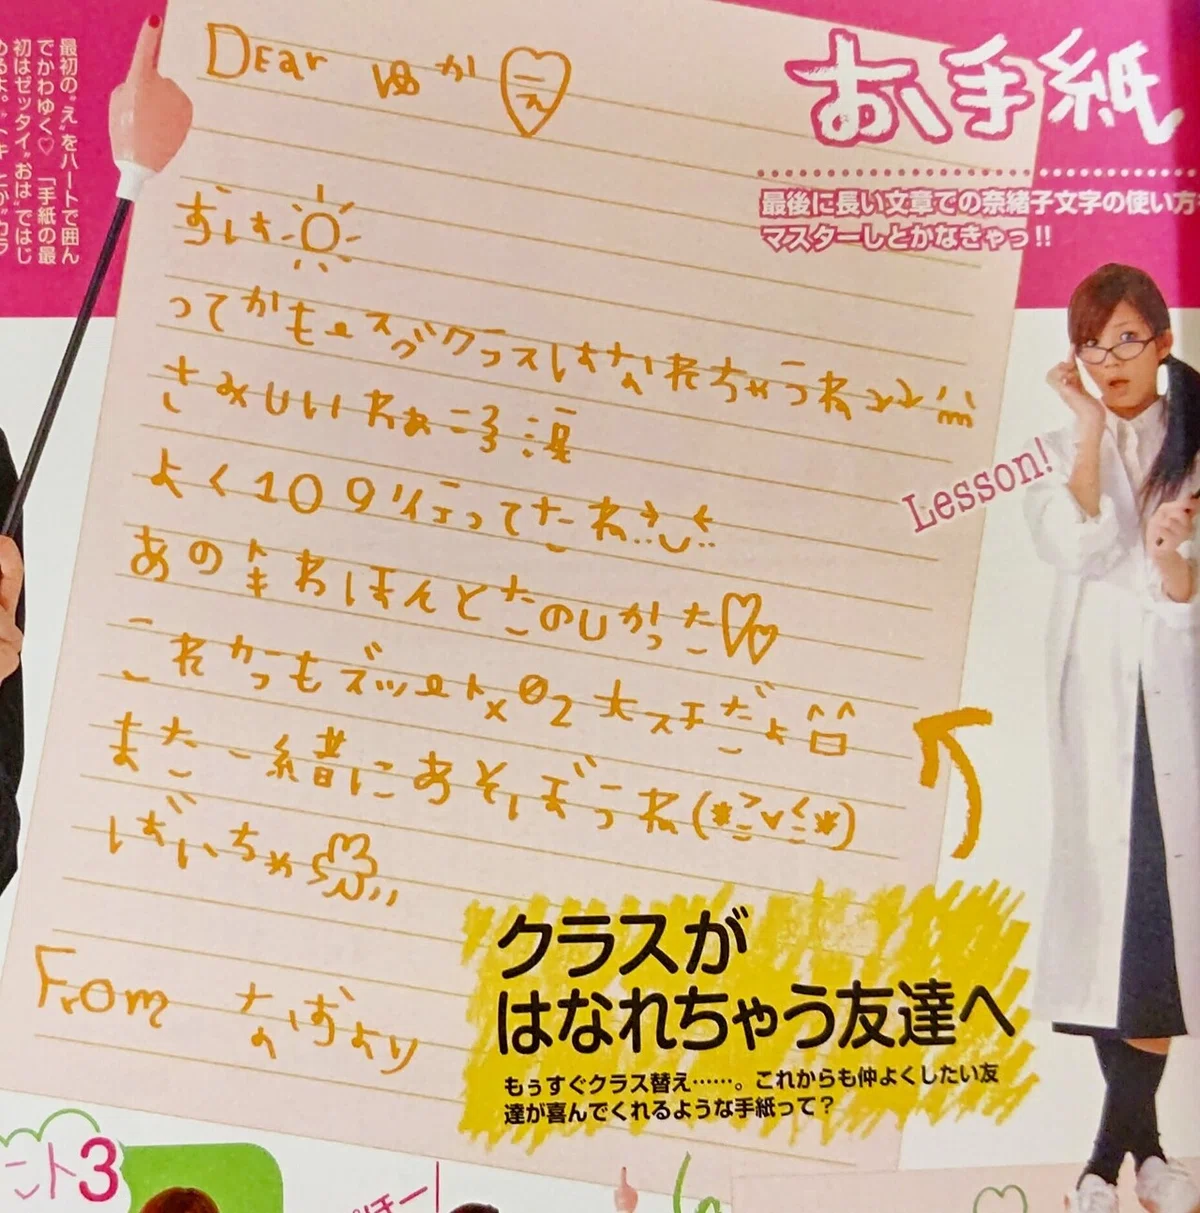 お手紙
最後に長い文章での奈緒子文字の使い方
マスターしとかなきゃっ!!
最初の“え”をハートで囲ん
でかわゆく♡ 「手紙の最
初はゼッタイ“おは”ではじ
Dear ゆか え
おはま
ってかもぅスグクラスはなれちゃうね
さみしいねぇ 涙
よく109行ってたね
あのトキわほんとたのしかった
これからもズットx02大スキだよ
また一緒にあそぼうね(*>∨<*)
ばいちゃ
From なおより
Lesson!
クラスが
はなれちゃう友達へ
もぅすぐクラス替え……。これからも仲よくしたい友
達が喜んでくれるような手紙って?
ント3